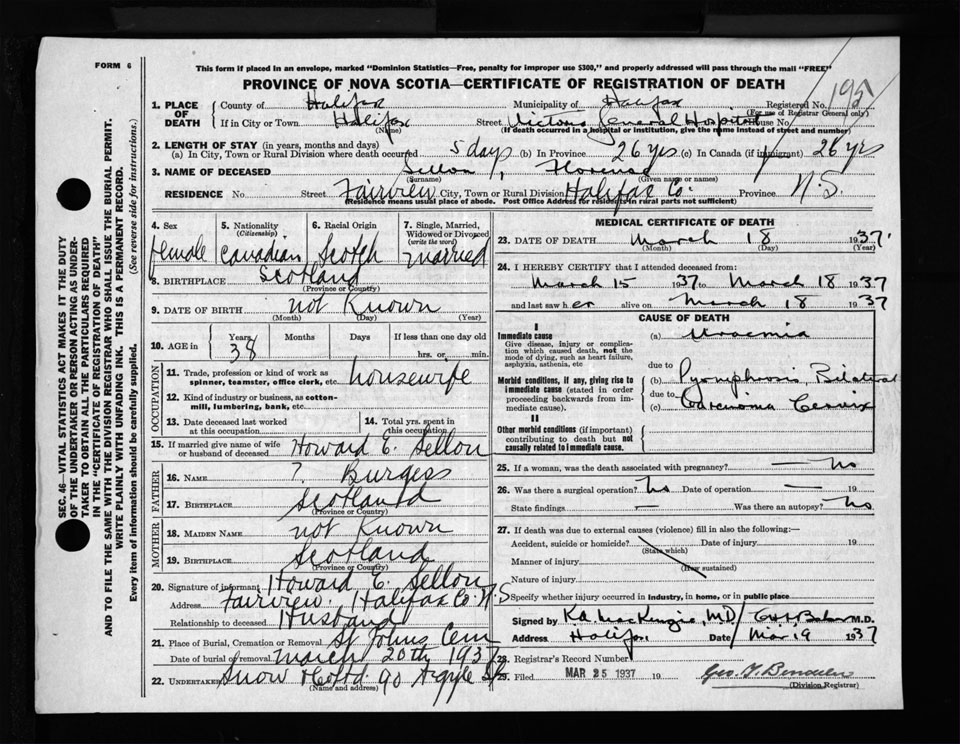 FORM 6
This form if placed in an envelope, marked "Dominion Statistics—Free, penalty for improper use $300," and properly addressed will pass through the mail "FREE"
PROVINCE OF NOVA SCOTIA—CERTIFICATE OF REGISTRATION OF DEATH
1. PLACE OF DEATH
County of Halifax Municipality of Halifax Registered No. 195
(For use of Registrar General only)
If in City or Town Halifax Street Victoria General Hospital House No.
(Name) (If death occurred in a hospital or institution, give the name instead of street and number)
2. LENGTH OF STAY (in years, months and days)
(a) In City, Town or Rural Division where death occurred 5 days (b) In Province 26 yrs (c) In Canada (if immigrant) 26 yrs
3. NAME OF DECEASED Sellon, Florence
(Surname) (Given name or names)
RESIDENCE No. Street Fairview City, Town or Rural Division Halifax Co. Province N.S.
(Residence means usual place of abode. Post Office Address for residents in rural parts not sufficient)
4. Sex female
5. Nationality (Citizenship) Canadian
6. Racial Origin Scotch
7. Single, Married, Widowed or Divorced (write the word) Married
8. BIRTHPLACE Scotland
(Province or Country)
9. DATE OF BIRTH not Known
(Month) (Day) (Year)
10. AGE in Years 38 Months Days If less than one day old
hrs. or min.
OCCUPATION
11. Trade, profession or kind of work as spinner, teamster, office clerk, etc. housewife
12. Kind of industry or business, as cotton-mill, lumbering, bank, etc.
13. Date deceased last worked at this occupation
14. Total yrs. spent in this occupation
15. If married give name of wife or husband of deceased Howard E. Sellon
FATHER
16. NAME ? Burgess
17. BIRTHPLACE Scotland
(Province or Country)
MOTHER
18. MAIDEN NAME not Known
19. BIRTHPLACE Scotland
(Province or Country)
20. Signature of informant Howard E. Sellon
Address Fairview. Halifax Co. N.S
Relationship to deceased Husband
21. Place of Burial, Cremation or Removal St Johns Cem
Date of burial or removal March 20th 1937
22. UNDERTAKER Snow & Co Ltd 90 Argyle St
(Name and address)
MEDICAL CERTIFICATE OF DEATH
23. DATE OF DEATH March 18 1937.
(Month) (Day) (Year)
24. I HEREBY CERTIFY that I attended deceased from:
March 15 1937 to March 18 1937
and last saw her alive on March 18 1937
CAUSE OF DEATH
I
Immediate cause
Give disease, injury or complication which caused death, not the mode of dying, such as heart failure, asphyxia, asthenia, etc
(a) Uraemia
due to
Morbid conditions, if any, giving rise to immediate cause (stated in order proceeding backwards from immediate cause).
(b) Pyonephrosis, Bilateral
due to
(c) Carcinoma Cervix
II
Other morbid conditions (if important) contributing to death but not causally related to immediate cause.
25. If a woman, was the death associated with pregnancy? — no
26. Was there a surgical operation? No Date of operation — 19
State findings — Was there an autopsy? No
27. If death was due to external causes (violence) fill in also the following:—
Accident, suicide or homicide? Date of injury 19
(State which)
Manner of injury
(How sustained)
Nature of injury
Specify whether injury occurred in industry, in home, or in public place
Signed by K.A. MacKenzie, M.D. / M.D.
Address Halifax Date Mar 19 1937
28. Registrar's Record Number
29. Filed MAR 25 1937
(Division Registrar)
SEC. 46—VITAL STATISTICS ACT MAKES IT THE DUTY
OF THE UNDERTAKER OR PERSON ACTING AS UNDER-
TAKER TO OBTAIN ALL THE PARTICULARS REQUIRED
IN THE "CERTIFICATE OF REGISTRATION OF DEATH"
AND TO FILE THE SAME WITH THE DIVISION REGISTRAR WHO SHALL ISSUE THE BURIAL PERMIT.
WRITE PLAINLY WITH UNFADING INK. THIS IS A PERMANENT RECORD.
Every item of information should be carefully supplied. (See reverse side for instructions.)